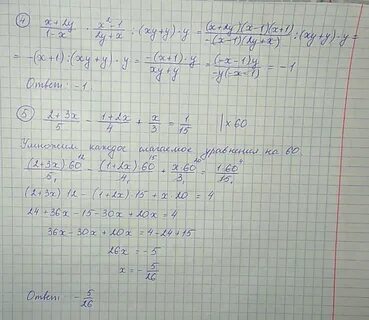 ④ (x+2y)/(1-x) · (x²-1)/(2y+x) : (xy+y)·y = (x+2y)(x-1)(x+1)/(-(x-1)(2y+x)) : (xy+y)·y =
= -(x+1) : (xy+y) · y = -(x+1)·y/(xy+y) = (-x-1)y/(-y(-x-1)) = -1
Ответ: -1.
⑤ (2+3x)/5 - (1+2x)/4 + x/3 = 1/15 | x 60
Умножим каждое слагаемое уравнения на 60.
(2+3x)·60¹²/5 - (1+2x)·60¹⁵/4 + x·60/3 = 1·60⁴/15
(2+3x)·12 - (1+2x)·15 + x·20 = 4
24+36x-15-30x+20x = 4
36x-30x+20x = 4-24+15
26x = -5
x = -5/26
Ответ: -5/26